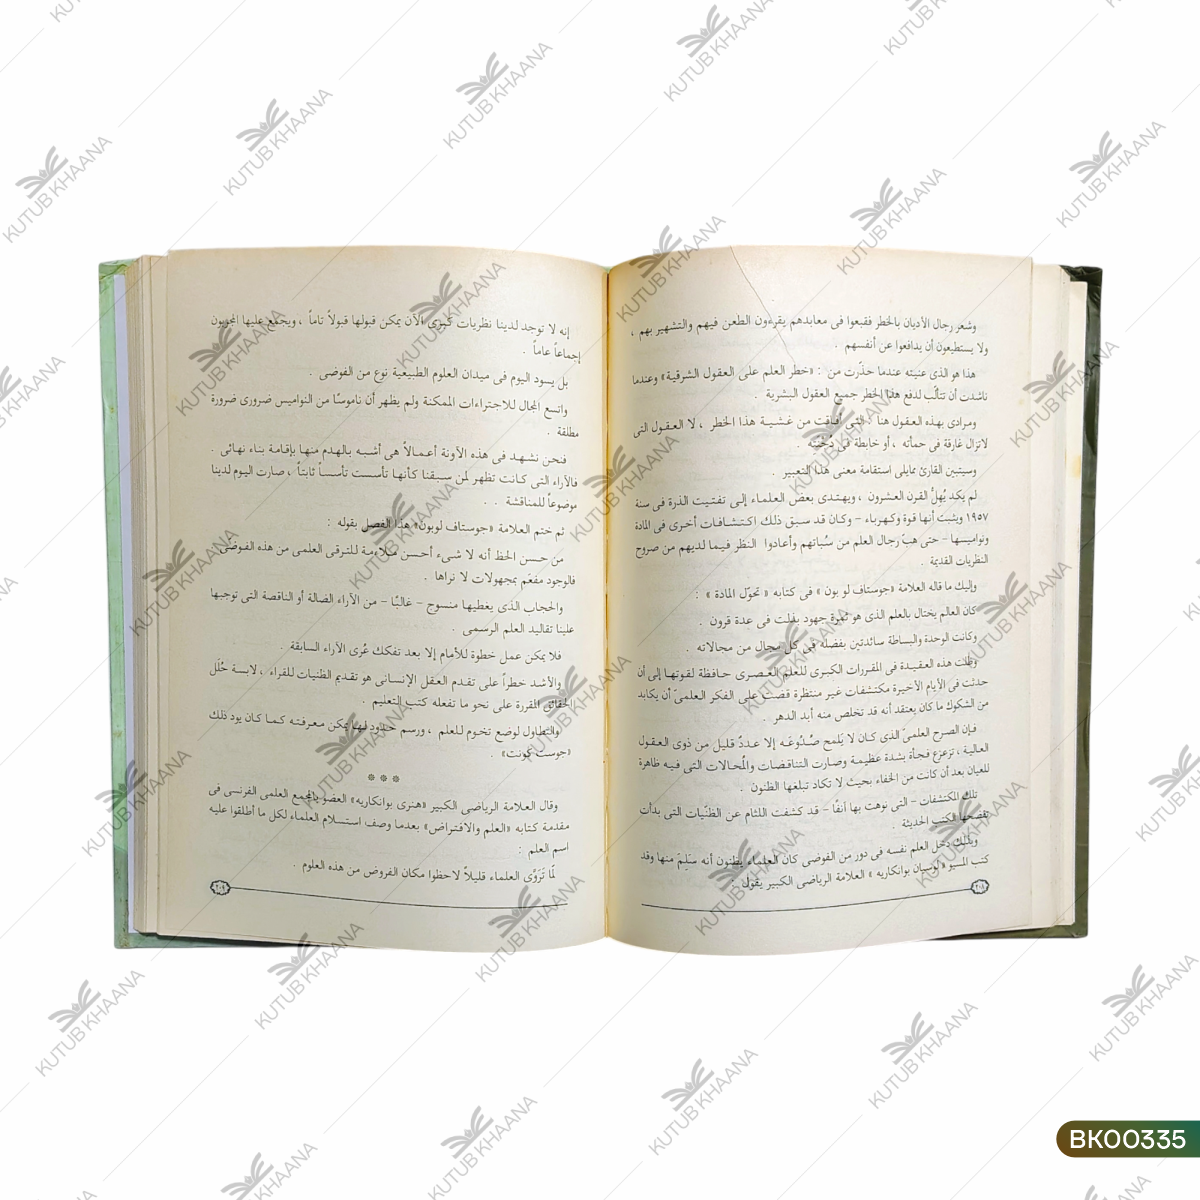 وشعر رجال الأديان بالخطر فقبعوا فى معابدهم يقرءون الطعن فيهم والتشهير بهم ،
ولا يستطيعون أن يدافعوا عن أنفسهم .
هذا هو الذى عنيته عندما حذّرت من : «خطر العلم على العقول الشرقية» وعندما
ناشدت أن تتألّب لدفع هذا الخطر جميع العقول البشرية .
ومرادى بهذه العقول هنا : التى أفاقت من غشية هذا الخطر ، لا العقول التى
لاتزال غارقة فى حمأته ، أو خابطة فى دُجُنّته .
وسيتبين القارئ ممايلى استقامة معنى هذا التعبير .
لم يكد يُهلُّ القرن العشرون ، ويهتدى بعض العلماء إلى تفتيت الذرة فى سنة
١٩٥٧ ويثبت أنها قوة وكهرباء – وكان قد سبق ذلك اكتشافات أخرى فى المادة
ونواميسها – حتى هبّ رجال العلم من سُباتهم وأعادوا النظر فيما لديهم من صروح
النظريات القديمة .
وإليك ما قاله العلامة «جوستاف لو بون » فى كتابه « تحوّل المادة » :
كان العالم يختال بالعلم الذى هو ثمرة جهود بذلت فى عدة قرون .
وكانت الوحدة والبساطة سائدتين بفضله فى كل مجال من مجالاته .
وظلت هذه العقيدة فى المقررات الكبرى للعلم العصرى حافظة لقوتها إلى أن
حدثت فى الأيام الأخيرة مكتشفات غير منتظرة قضت على الفكر العلمىّ أن يكابد
من الشكوك ما كان يعتقد أنه قد تخلص منه أبد الدهر .
فإن الصرح العلمىّ الذى كان لا يلمح صُدُوعَه إلا عددٌ قليل من ذوى العقول
العالية ، تزعزع فجأة بشدة عظيمة وصارت التناقضات والمُحالات التى فيه ظاهرة
للعيان بعد أن كانت من الخفاء بحيث لا تكاد تبلغها الظنون .
تلك المكتشفات – التى نوهت بها آنفًا – قد كشفت اللثام عن الظنّيات التى بدأت
تفضحها الكتب الحديثة .
وبذلك دخل العلم نفسه فى دور من الفوضى كان العلماء يظنون أنه سَلِمَ منها وقد
كتب المسيو « لوسيان بوانكاريه » العلامة الرياضى الكبير يقول :
٢٠٨
إنه لا توجد لدينا نظريات كبرى الآن يمكن قبولها قبولاً تاماً ، ويجمع عليها المجربون
إجماعاً عاماً .
بل يسود اليوم فى ميدان العلوم الطبيعية نوع من الفوضى .
واتسع المجال للاجتراءات الممكنة ولم يظهر أن ناموسًا من النواميس ضرورى ضرورة
مطلقة .
فنحن نشهد فى هذه الآونة أعمالاً هى أشبه بالهدم منها بإقامة بناء نهائى .
فالآراء التى كانت تظهر لمن سبقنا كأنها تأسست تأسساً ثابتاً ، صارت اليوم لدينا
موضوعاً للمناقشة .
ثم ختم العلامة «جوستاف لوبون» هذا الفصل بقوله :
من حسن الحظ أنه لا شىء أحسن ملاءمة للترقى العلمى من هذه الفوضى .
فالوجود مفعَم بمجهولات لا نراها .
والحجاب الذى يغطيها منسوج – غالبًا – من الآراء الضالة أو الناقصة التى توجبها
علينا تقاليد العلم الرسمى .
فلا يمكن عمل خطوة للأمام إلا بعد تفكك عُرى الآراء السابقة .
والأشد خطراً على تقدم العقل الإنسانى هو تقديم الظنيات للقراء ، لابسة حُلَل
الحقائق المقررة على نحو ما تفعله كتب التعليم .
والتطاول لوضع تخوم للعلم ، ورسم حدود لما يمكن معرفته كما كان يود ذلك
«جوست كونت» .
***
وقال العلامة الرياضى الكبير «هنرى بوانكاريه» العضو بالمجمع العلمى الفرنسى فى
مقدمة كتابه «العلم والافتراض» بعدما وصف استسلام العلماء لكل ما أطلقوا عليه
اسم العلم :
لَمّا تَرَوَّى العلماء قليلاً لاحظوا مكان الفروض من هذه العلوم .
٢٠٩
KUTUB KHAANA
BK00335